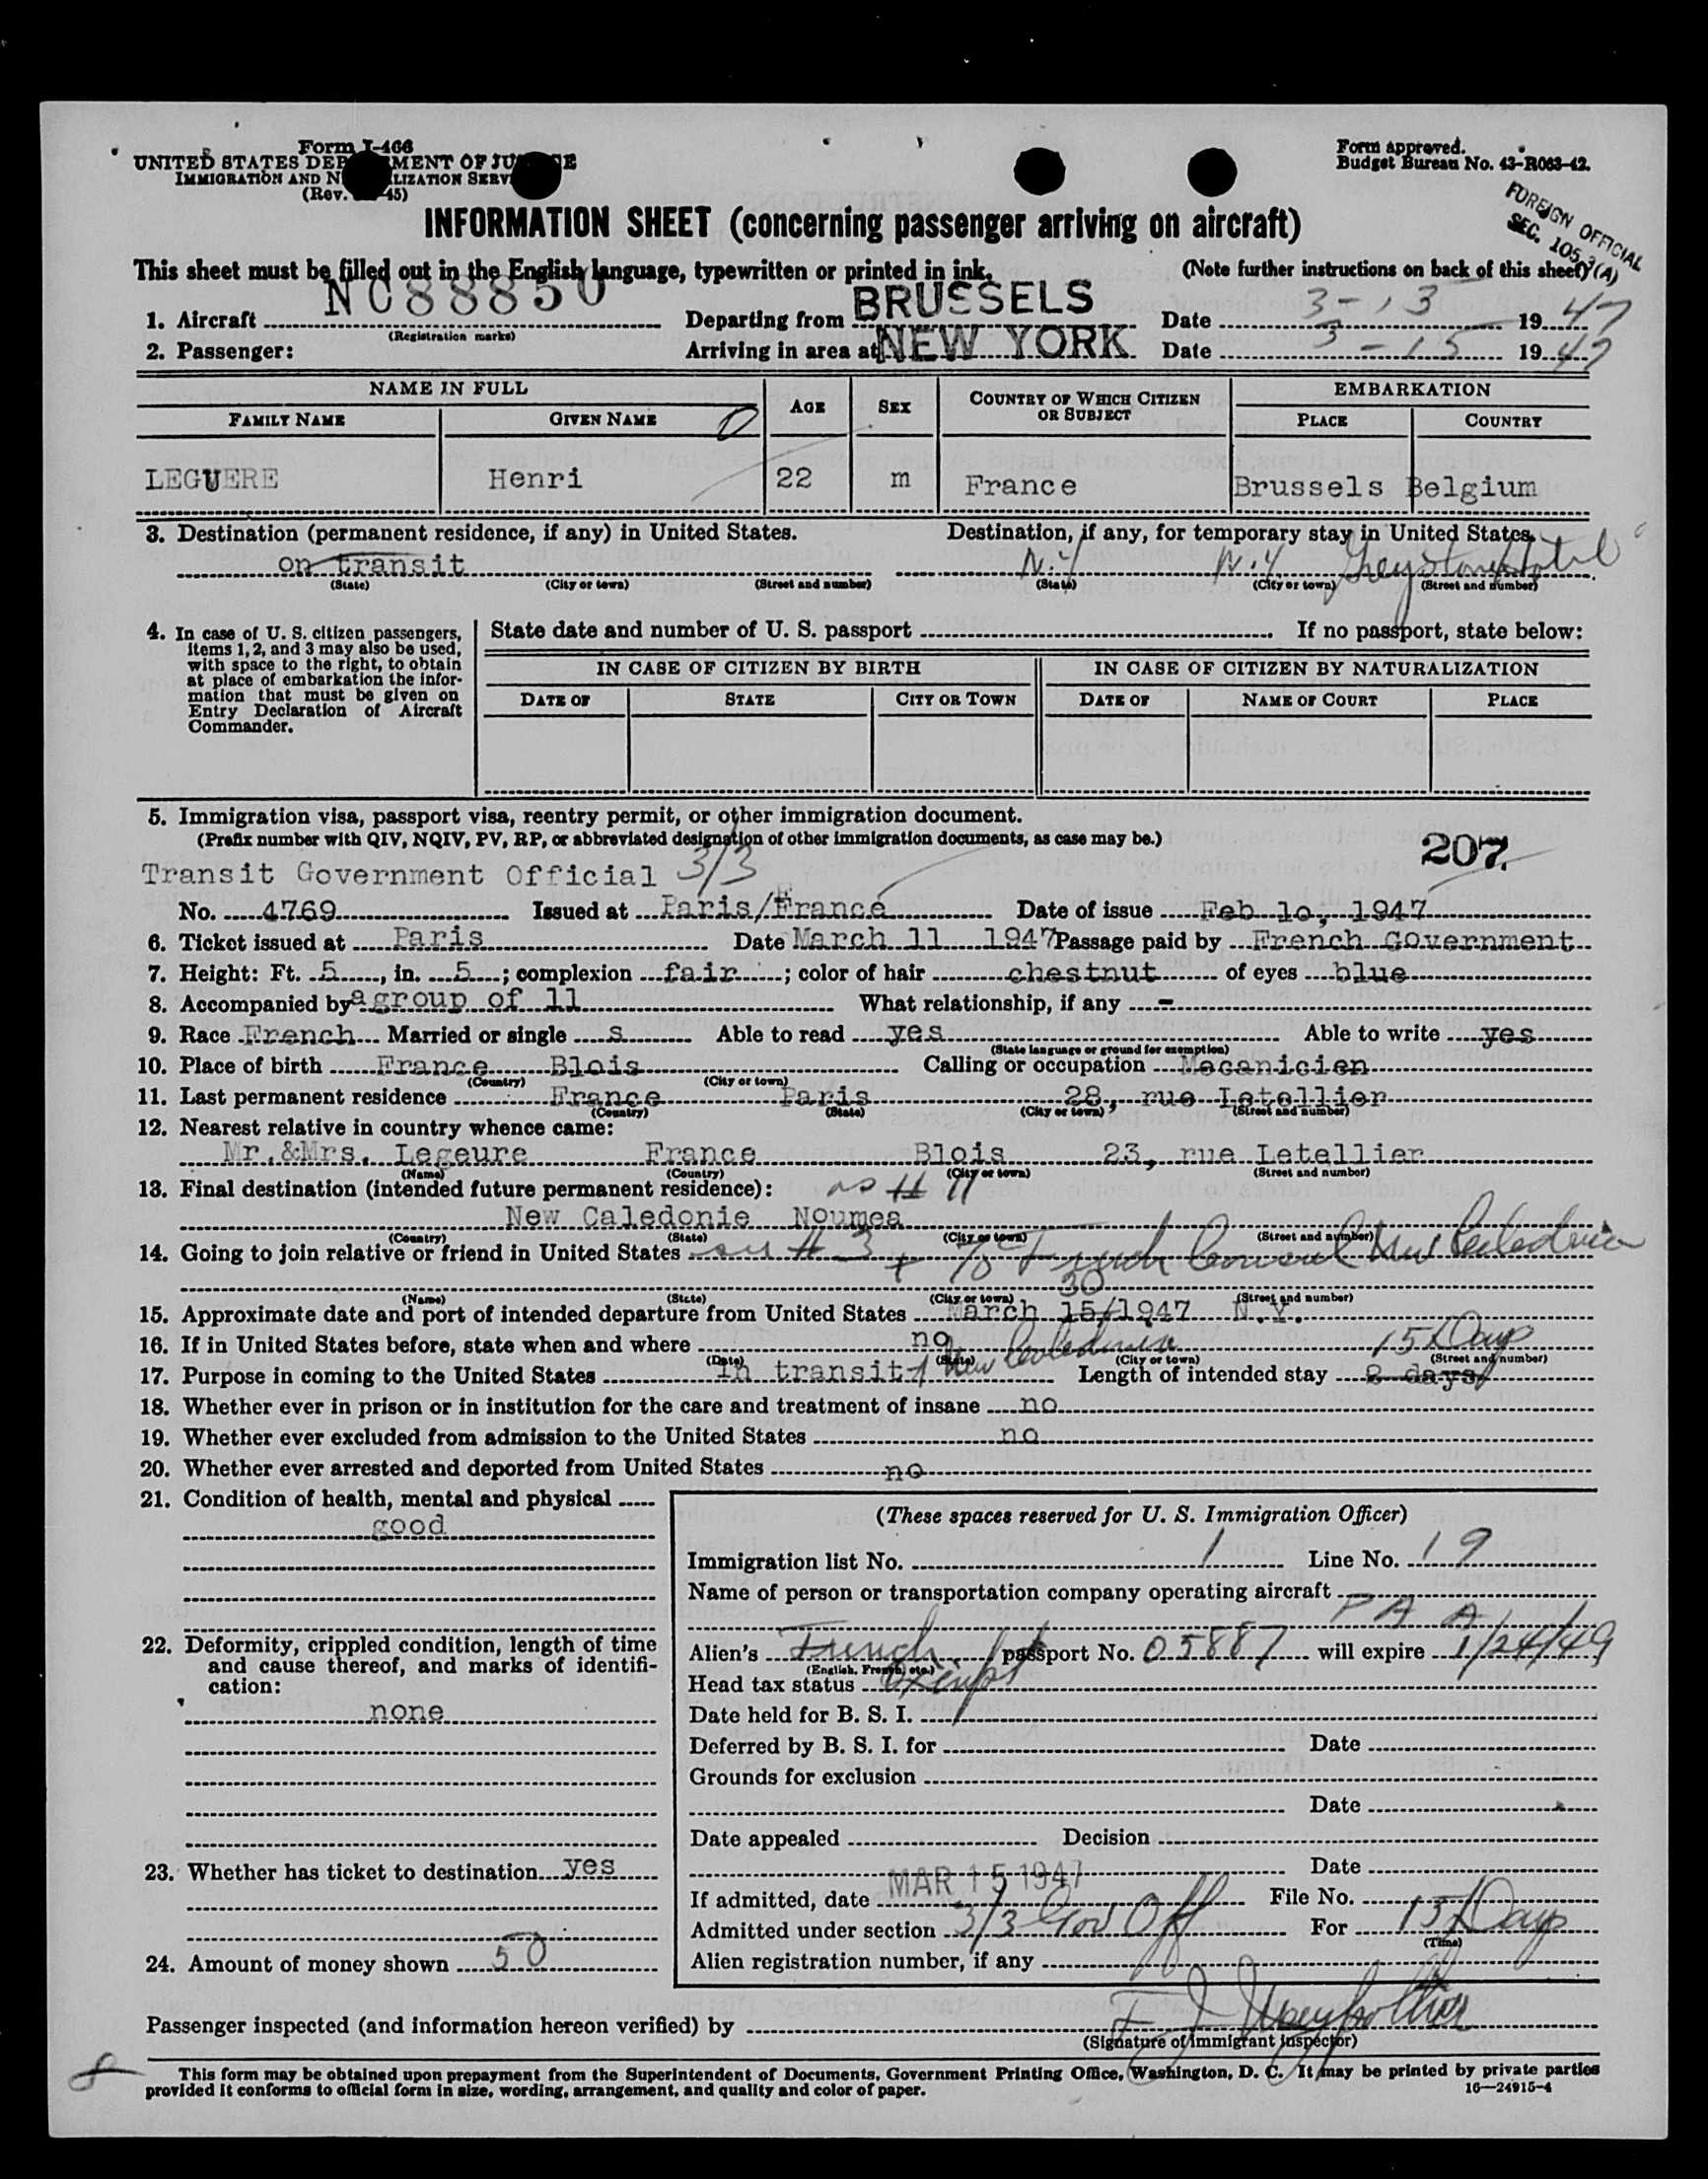 Form I-466
UNITED STATES DEP MENT OF JU E
IMMIGRATION AND N LIZATION SERV
(Rev. 45)
Form approved.
Budget Bureau No. 43-R063-42.
FOREIGN OFFICIAL
SEC. 105.3(A)
INFORMATION SHEET (concerning passenger arriving on aircraft)
This sheet must be filled out in the English language, typewritten or printed in ink. (Note further instructions on back of this sheet)
1. Aircraft NC88850 Departing from BRUSSELS Date 3-13 1947
(Registration marks)
2. Passenger: Arriving in area at NEW YORK Date 3-15 1947
NAME IN FULL AGE SEX COUNTRY OF WHICH CITIZEN OR SUBJECT EMBARKATION
FAMILY NAME GIVEN NAME PLACE COUNTRY
LEGUERE Henri 22 m France Brussels Belgium
3. Destination (permanent residence, if any) in United States. Destination, if any, for temporary stay in United States.
on transit N.Y N.Y Greystone Hotel
(State) (City or town) (Street and number) (State) (City or town) (Street and number)
4. In case of U. S. citizen passengers, items 1, 2, and 3 may also be used, with space to the right, to obtain at place of embarkation the information that must be given on Entry Declaration of Aircraft Commander.
State date and number of U. S. passport If no passport, state below:
IN CASE OF CITIZEN BY BIRTH IN CASE OF CITIZEN BY NATURALIZATION
DATE OF STATE CITY OR TOWN DATE OF NAME OF COURT PLACE
5. Immigration visa, passport visa, reentry permit, or other immigration document.
(Prefix number with QIV, NQIV, PV, RP, or abbreviated designation of other immigration documents, as case may be.)
207.
Transit Government Official 3/3
No. 4769 Issued at Paris/France Date of issue Feb 10, 1947
6. Ticket issued at Paris Date March 11 1947 Passage paid by French Government
7. Height: Ft. 5, in. 5; complexion fair; color of hair chestnut of eyes blue
8. Accompanied by a group of 11 What relationship, if any -
9. Race French Married or single s Able to read yes Able to write yes
(State language or ground for exemption)
10. Place of birth France Blois Calling or occupation Mecanicien
(Country) (City or town)
11. Last permanent residence France Paris 28, rue Letellier
(Country) (State) (City or town) (Street and number)
12. Nearest relative in country whence came:
Mr.&Mrs. Legeure France Blois 23, rue Letellier
(Name) (Country) (City or town) (Street and number)
13. Final destination (intended future permanent residence): as # 11
New Caledonie Noumea
(Country) (State) (City or town) (Street and number)
14. Going to join relative or friend in United States see # 3 + % French Consul New Caledonia
(Name) (State) (City or town) (Street and number)
30
15. Approximate date and port of intended departure from United States March 15/1947 N.Y.
16. If in United States before, state when and where no
(Date) (State) (City or town) (Street and number)
17. Purpose in coming to the United States In transit New Caledonia Length of intended stay 2 days 15 Days
18. Whether ever in prison or in institution for the care and treatment of insane no
19. Whether ever excluded from admission to the United States no
20. Whether ever arrested and deported from United States no
21. Condition of health, mental and physical
good
22. Deformity, crippled condition, length of time and cause thereof, and marks of identification:
none
23. Whether has ticket to destination yes
24. Amount of money shown 50
(These spaces reserved for U. S. Immigration Officer)
Immigration list No. 1 Line No. 19
Name of person or transportation company operating aircraft
P A A
Alien's French passport No. 05887 will expire 1/24/49
(English, French, etc.)
Head tax status Exempt
Date held for B. S. I.
Deferred by B. S. I. for Date
Grounds for exclusion
Date
Date appealed Decision
Date
If admitted, date MAR 15 1947 File No.
Admitted under section 3/3 Gov Off For 15 Days
(Time)
Alien registration number, if any
Passenger inspected (and information hereon verified) by
(Signature of immigrant inspector)
This form may be obtained upon prepayment from the Superintendent of Documents, Government Printing Office, Washington, D. C. It may be printed by private parties
provided it conforms to official form in size, wording, arrangement, and quality and color of paper. 16—24915-4